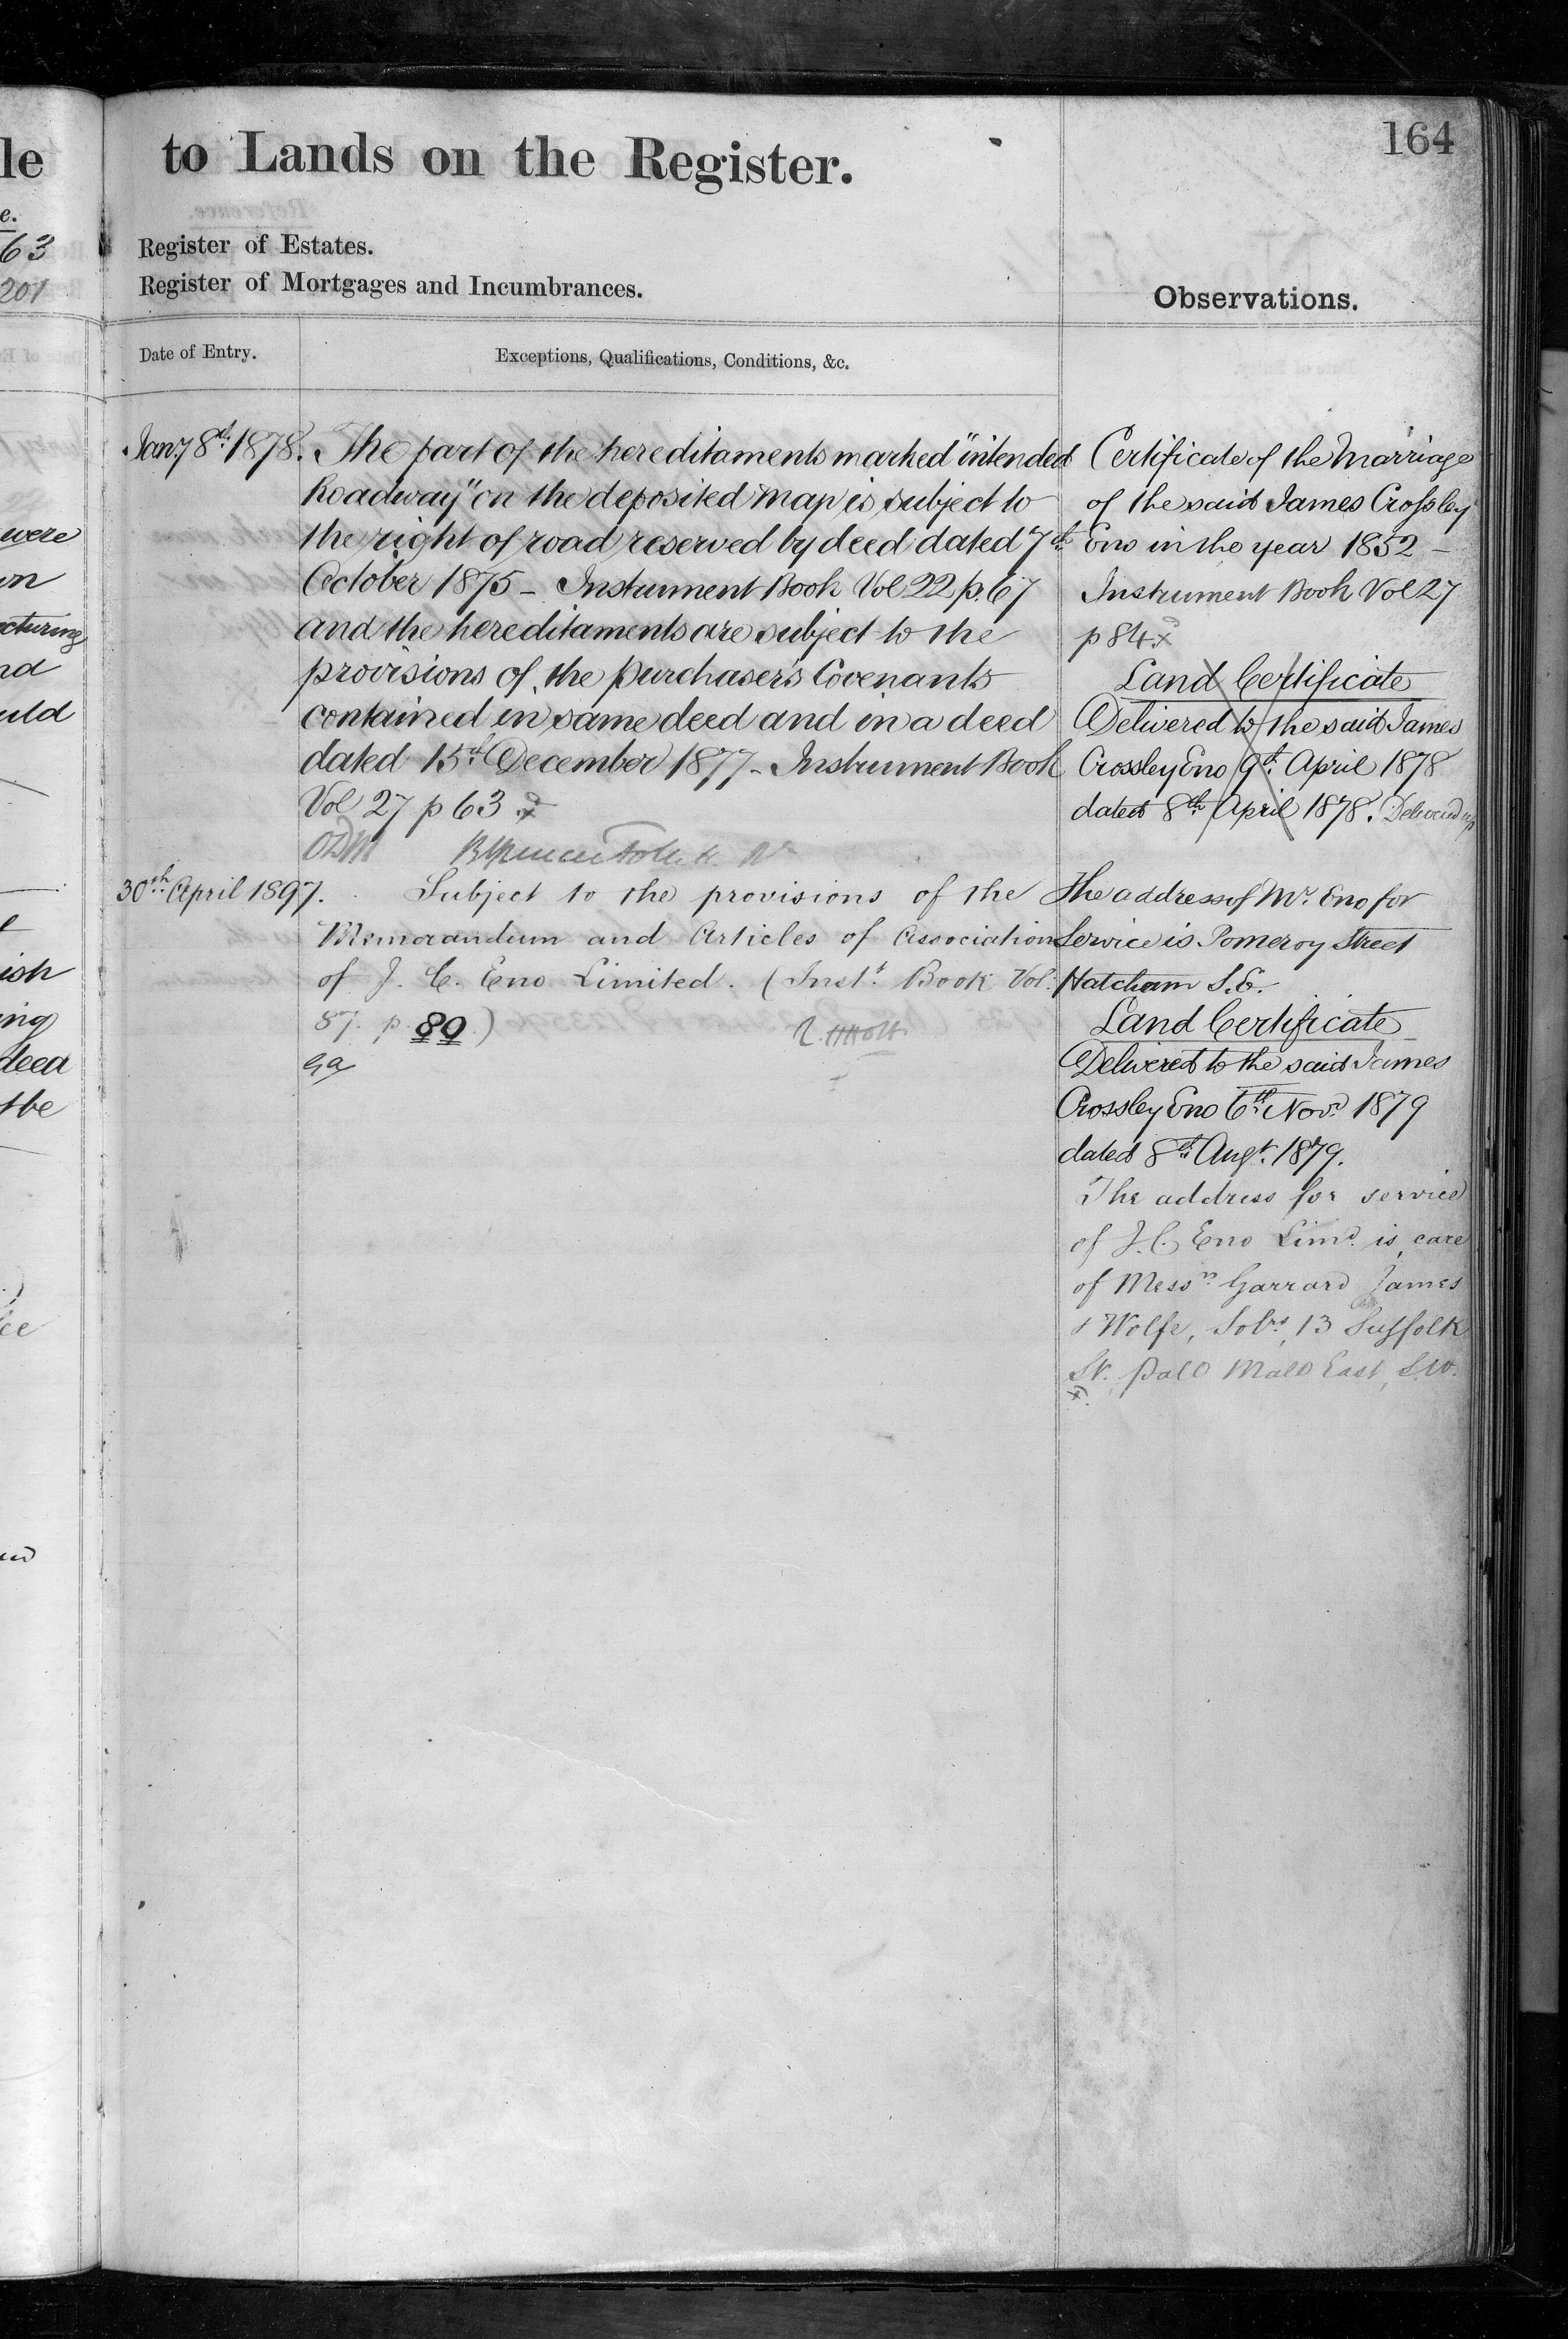 le
e.
63
201
were
on
cturing
nd
uld
ish
ing
deed
the
164
to Lands on the Register.
Register of Estates.
Register of Mortgages and Incumbrances.
Observations.
Date of Entry.
Exceptions, Qualifications, Conditions, &c.
Jany 8th 1878. The part of the hereditaments marked "intended
Roadway" on the deposited Map is subject to
the right of road reserved by deed dated 7th
October 1875 - Instrument Book Vol 22 p. 67
and the hereditaments are subject to the
provisions of the purchaser's Covenants
contained in same deed and in a deed
dated 15th December 1877 - Instrument Book
Vol 27 p 63
30th April 1897. Subject to the provisions of the
Memorandum and Articles of Association
of J. C. Eno Limited. (Inst. Book Vol.
87. p 80)
Certificate of the Marriage
of the said James Crossley
Eno in the year 1852 -
Instrument Book Vol 27
p 84
Land Certificate
Delivered to the said James
Crossley Eno 9th April 1878
dated 8th April 1878. Delivered up
The address of Mr. Eno for
Service is Pomeroy Street
Hatcham S.E.
Land Certificate
Delivered to the said James
Crossley Eno 6th Novr 1879
dated 8th Augt. 1879.
The address for service
of J. C. Eno Limd. is care
of Messrs Garrard James
& Wolfe, Solrs, 13 Suffolk
St. Pall Mall East, S.W.